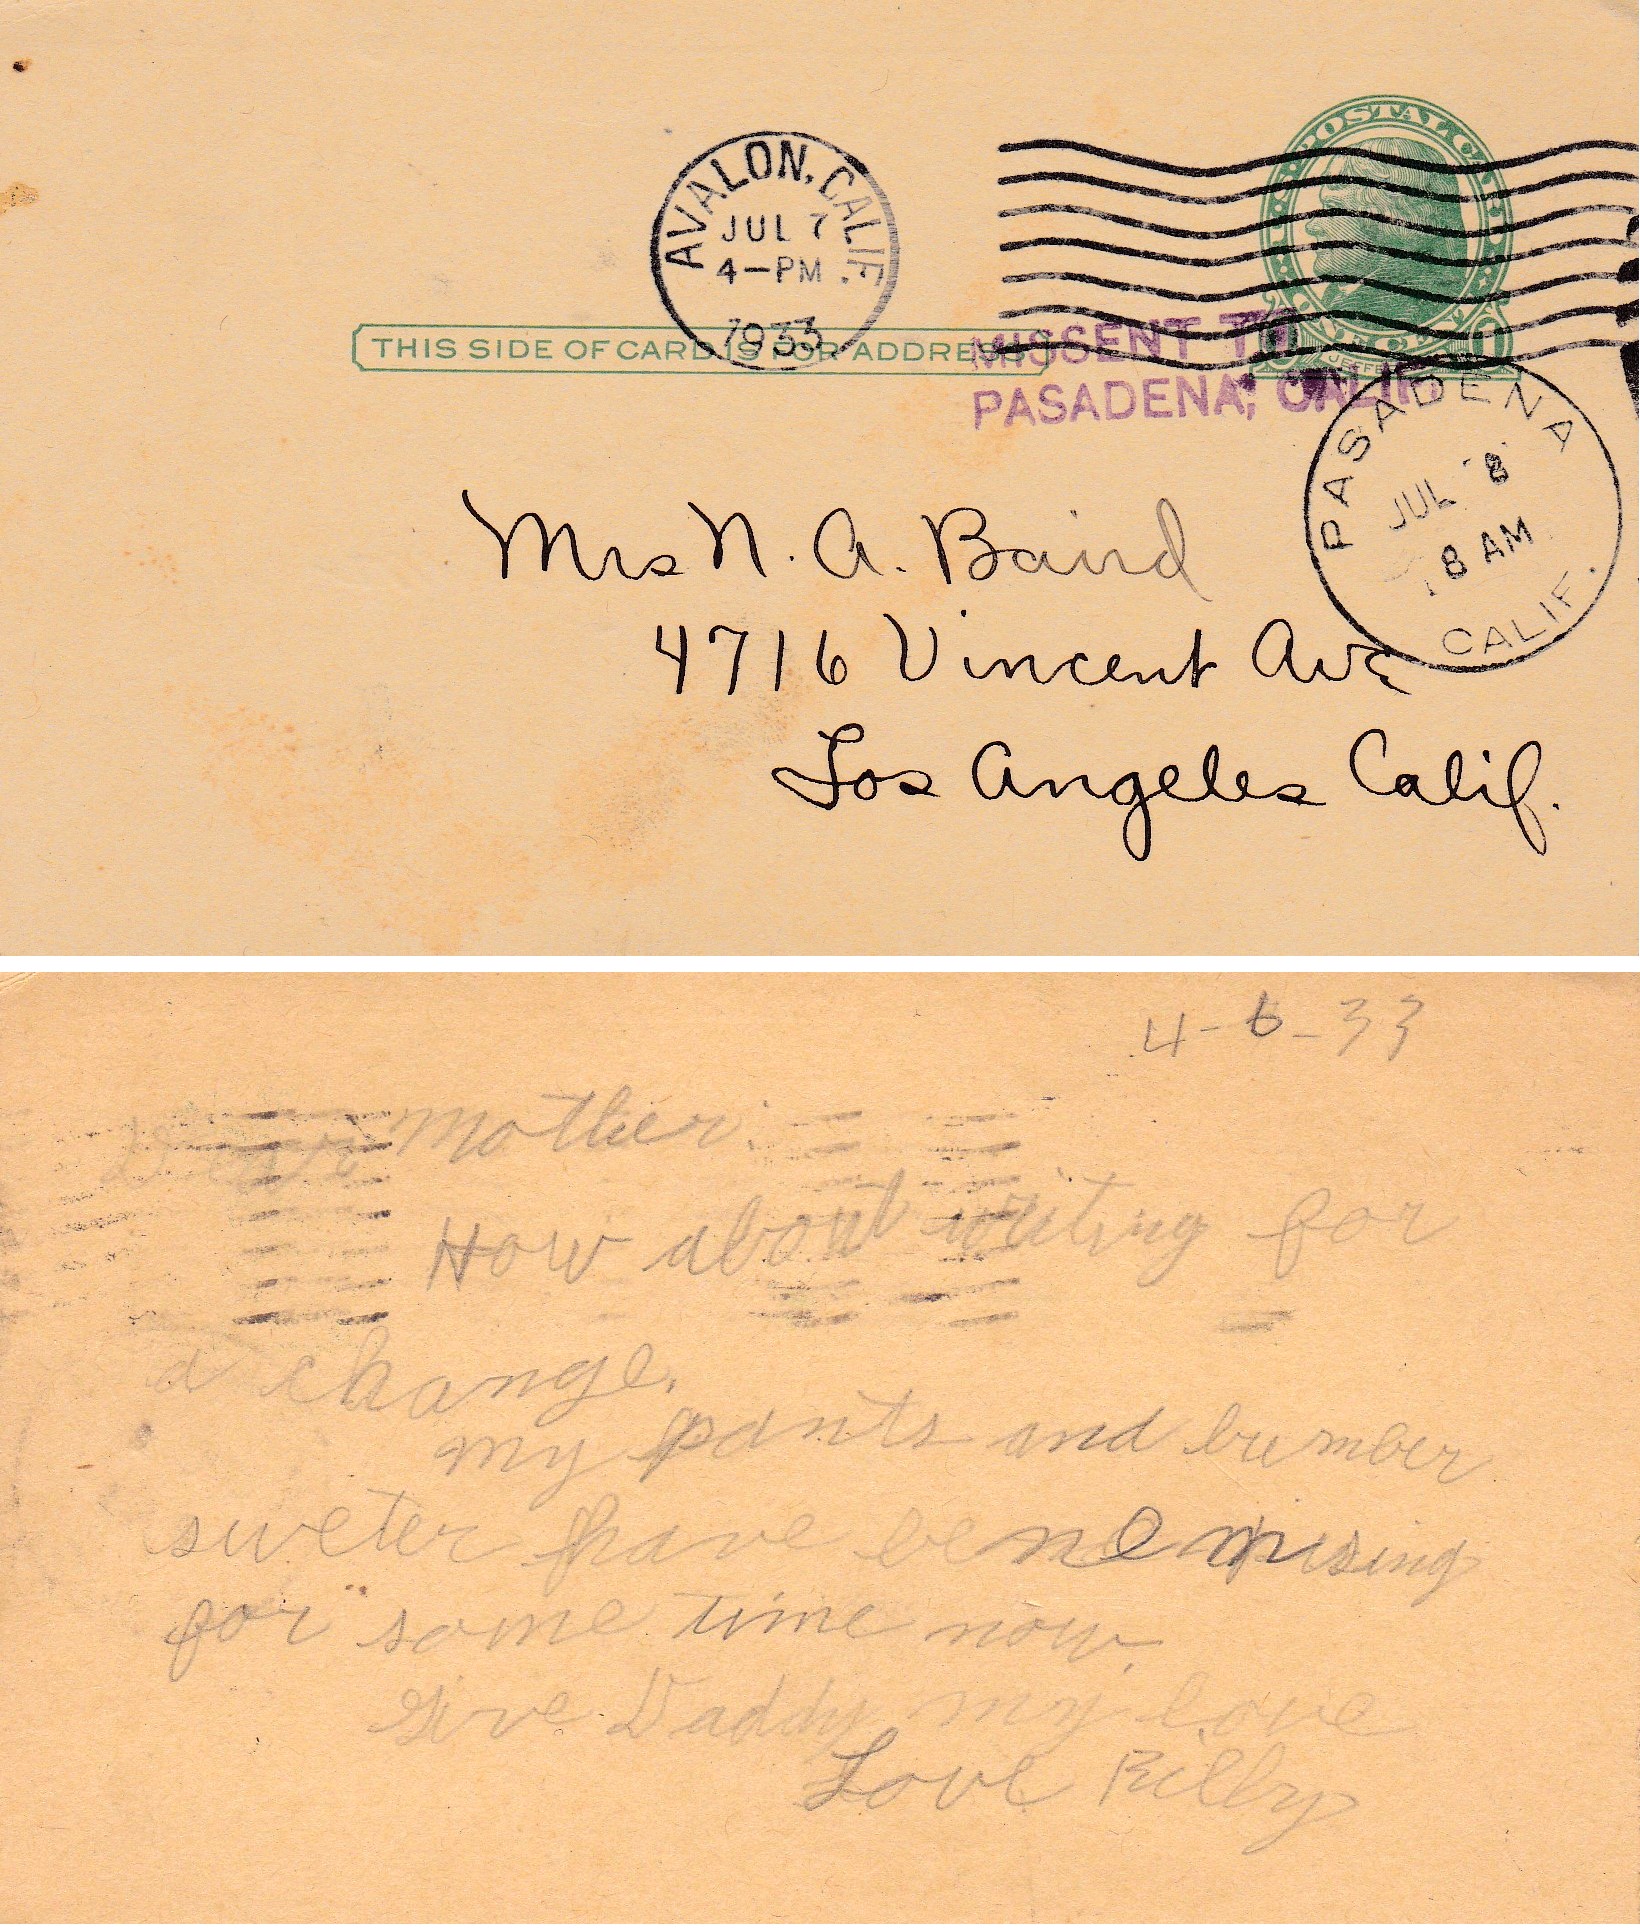 AVALON, CALIF.
JUL 7
4-PM
1933
THIS SIDE OF CARD IS FOR ADDRESS
MISSENT TO
PASADENA, CALIF.
PASADENA
JUL 8
8 AM
CALIF.
Mrs N. A. Baird
4716 Vincent Ave
Los Angeles Calif.
4-6-33
Dear Mother:
How about writing for
a change.
my pants and
sweter have bene misingfor some time now.
Give Daddy my love
Love Billy